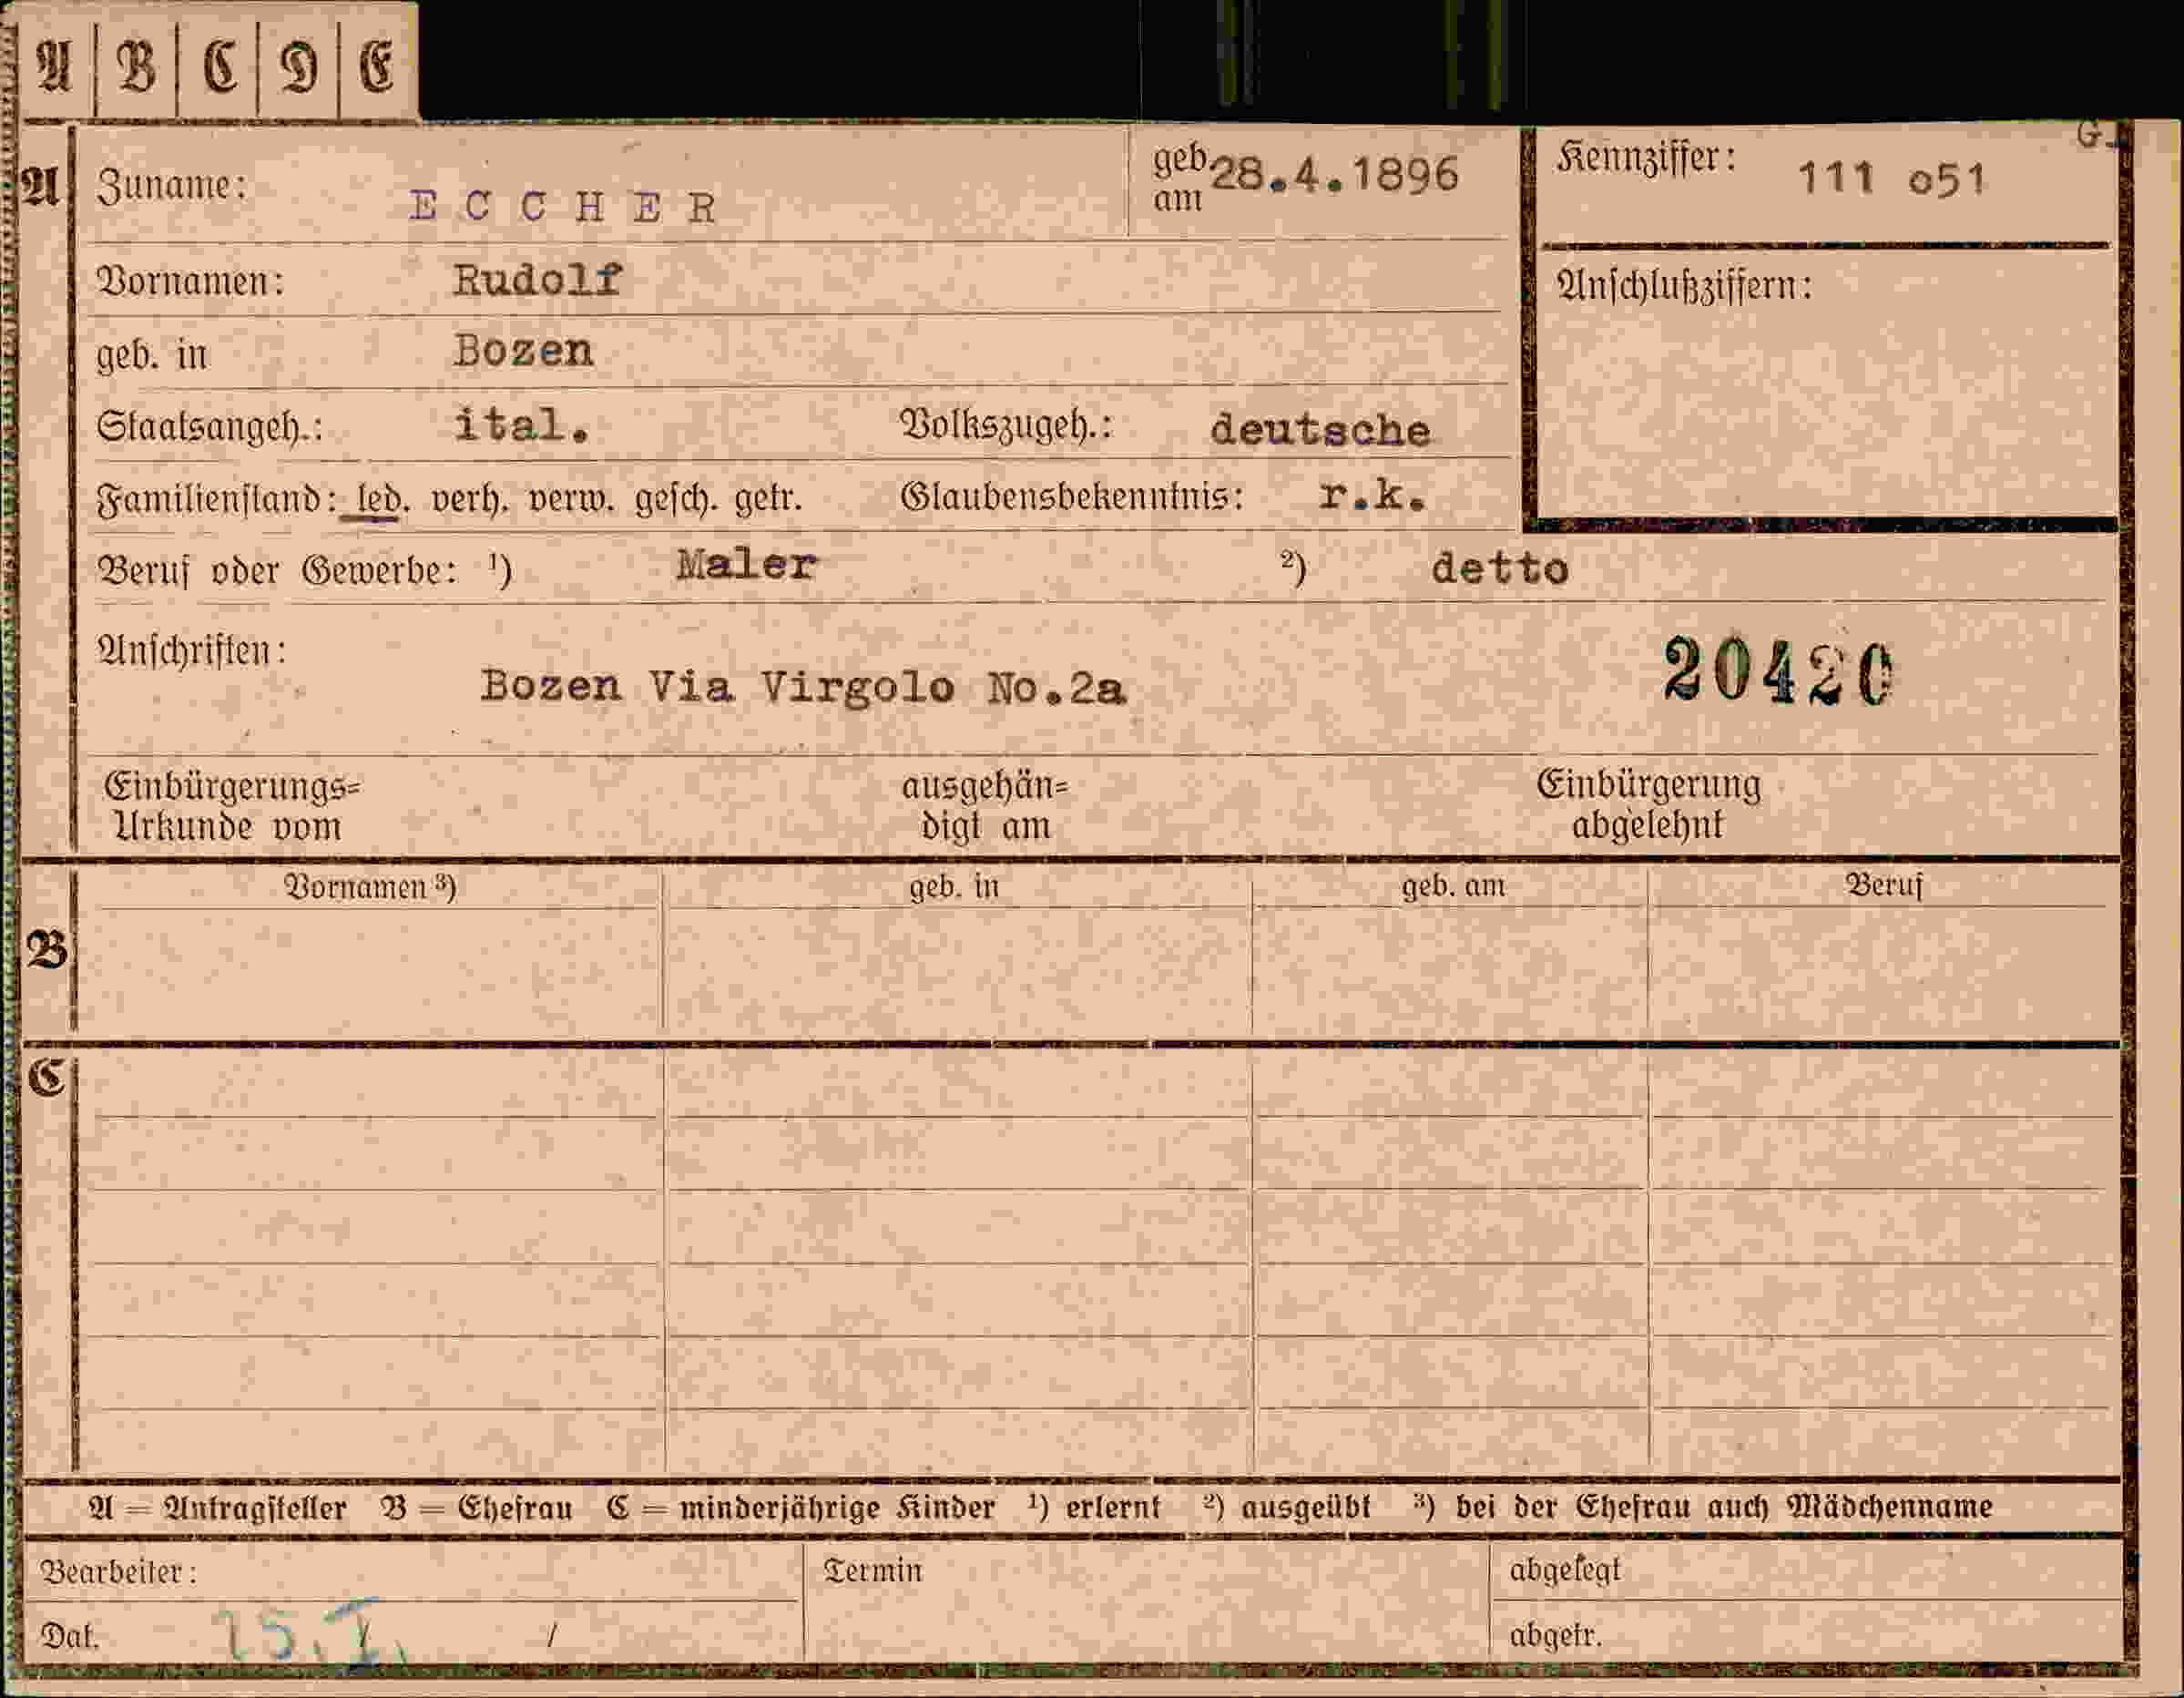 A B C D E
G.
A Zuname: ECCHER geb. am 28.4.1896 Kennziffer: 111 o51
Vornamen: Rudolf Anschlußziffern:
geb. in Bozen
Staatsangeh.: ital. Volkszugeh.: deutsche
Familienstand: led. verh. verw. gesch. getr. Glaubensbekenntnis: r.k.
Beruf oder Gewerbe: ¹) Maler ²) detto
Anschriften: Bozen Via Virgolo No.2a 20420
Einbürgerungs= ausgehän= Einbürgerung
Urkunde vom digt am abgelehnt
Vornamen ³) geb. in geb. am Beruf
B
C
A = Antragsteller B = Ehefrau C = minderjährige Kinder ¹) erlernt ²) ausgeübt ³) bei der Ehefrau auch Mädchenname
Bearbeiter: Termin abgelegt
Dat. 25.I. / abgetr.